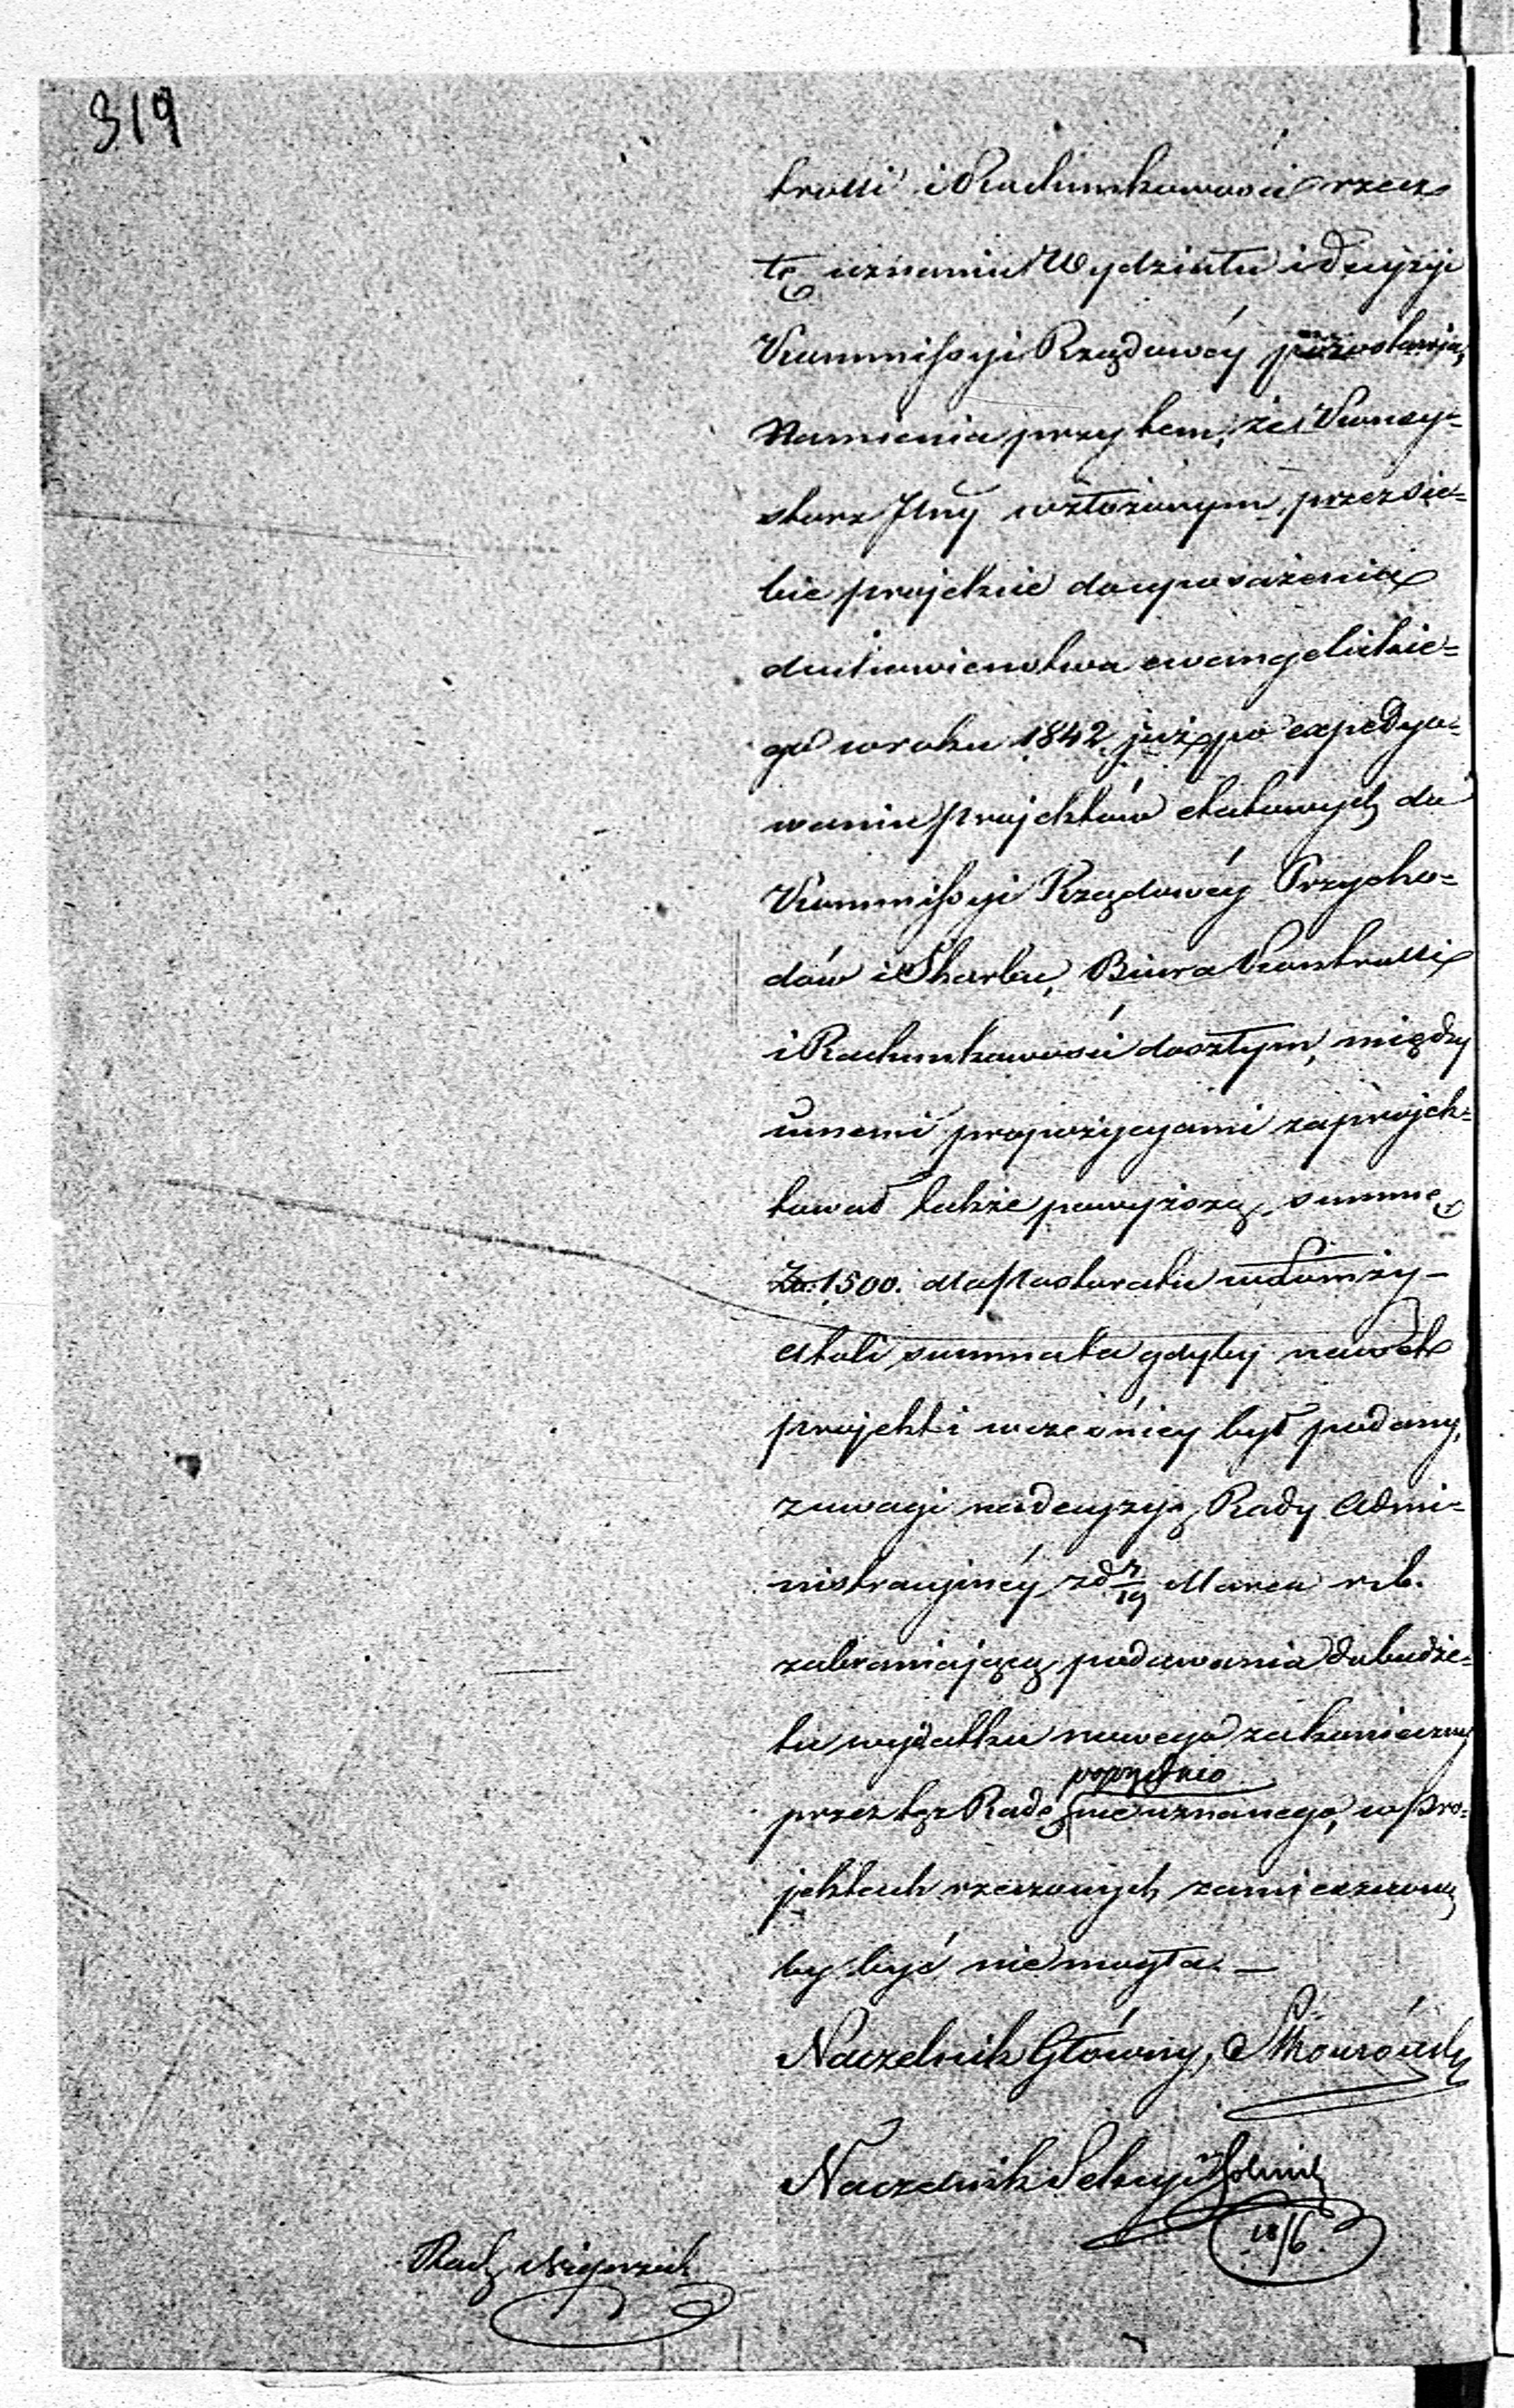 319
trolli i Rachunkowości rzecz
tę uznaniu Wydziału i decyzyi
Kommissyi Rządowéy pozostawia,
Namienia przytem, że Konsy=
storz Jlny w złożonym przez sie=
bie projekcie do uposażenia
duchowieństwa ewangelickie=
go w roku 1842, już po expedyo=
waniu projektów etatowych do
Kommissyi Rządowéy Przycho=
dów i Skarbu, Biura Kontrolli
i Rachunkowości doszłym, między
innemi propozycyami zaprojek=
tował także powyższą summę
Zł. 1500. dla Pastoratu w Łomży –
atoli summa ta gdyby nawet
projekt i wcześniey był podany,
z uwagi na decyzyą Rady Admi=
nistracyinéy z d 7/19 Marca r. b.
zabraniającą podawania do budże=
tu wydatku nowego za konieczny
poprzednio
przez tęż Radę nie uznanego, w pro=
jektach rzeczonych zamieszczoną
by być nie mogła. –
Naczelnik Główny,
Naczelnik Sekcyi
18/6